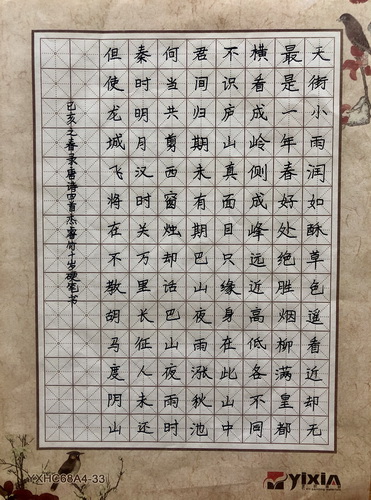 天街小雨润如酥草色遥看近却无
最是一年春好处绝胜烟柳满皇都
横看成岭侧成峰远近高低各不同
不识庐山真面目只缘身在此山中
君问归期未有期巴山夜雨涨秋池
何当共剪西窗烛却话巴山夜雨时
秦时明月汉时关万里长征人未还
但使龙城飞将在不教胡马度阴山
己亥之春录唐诗四首杰睿竹十岁硬笔书
YXHC68A4-33
yixin